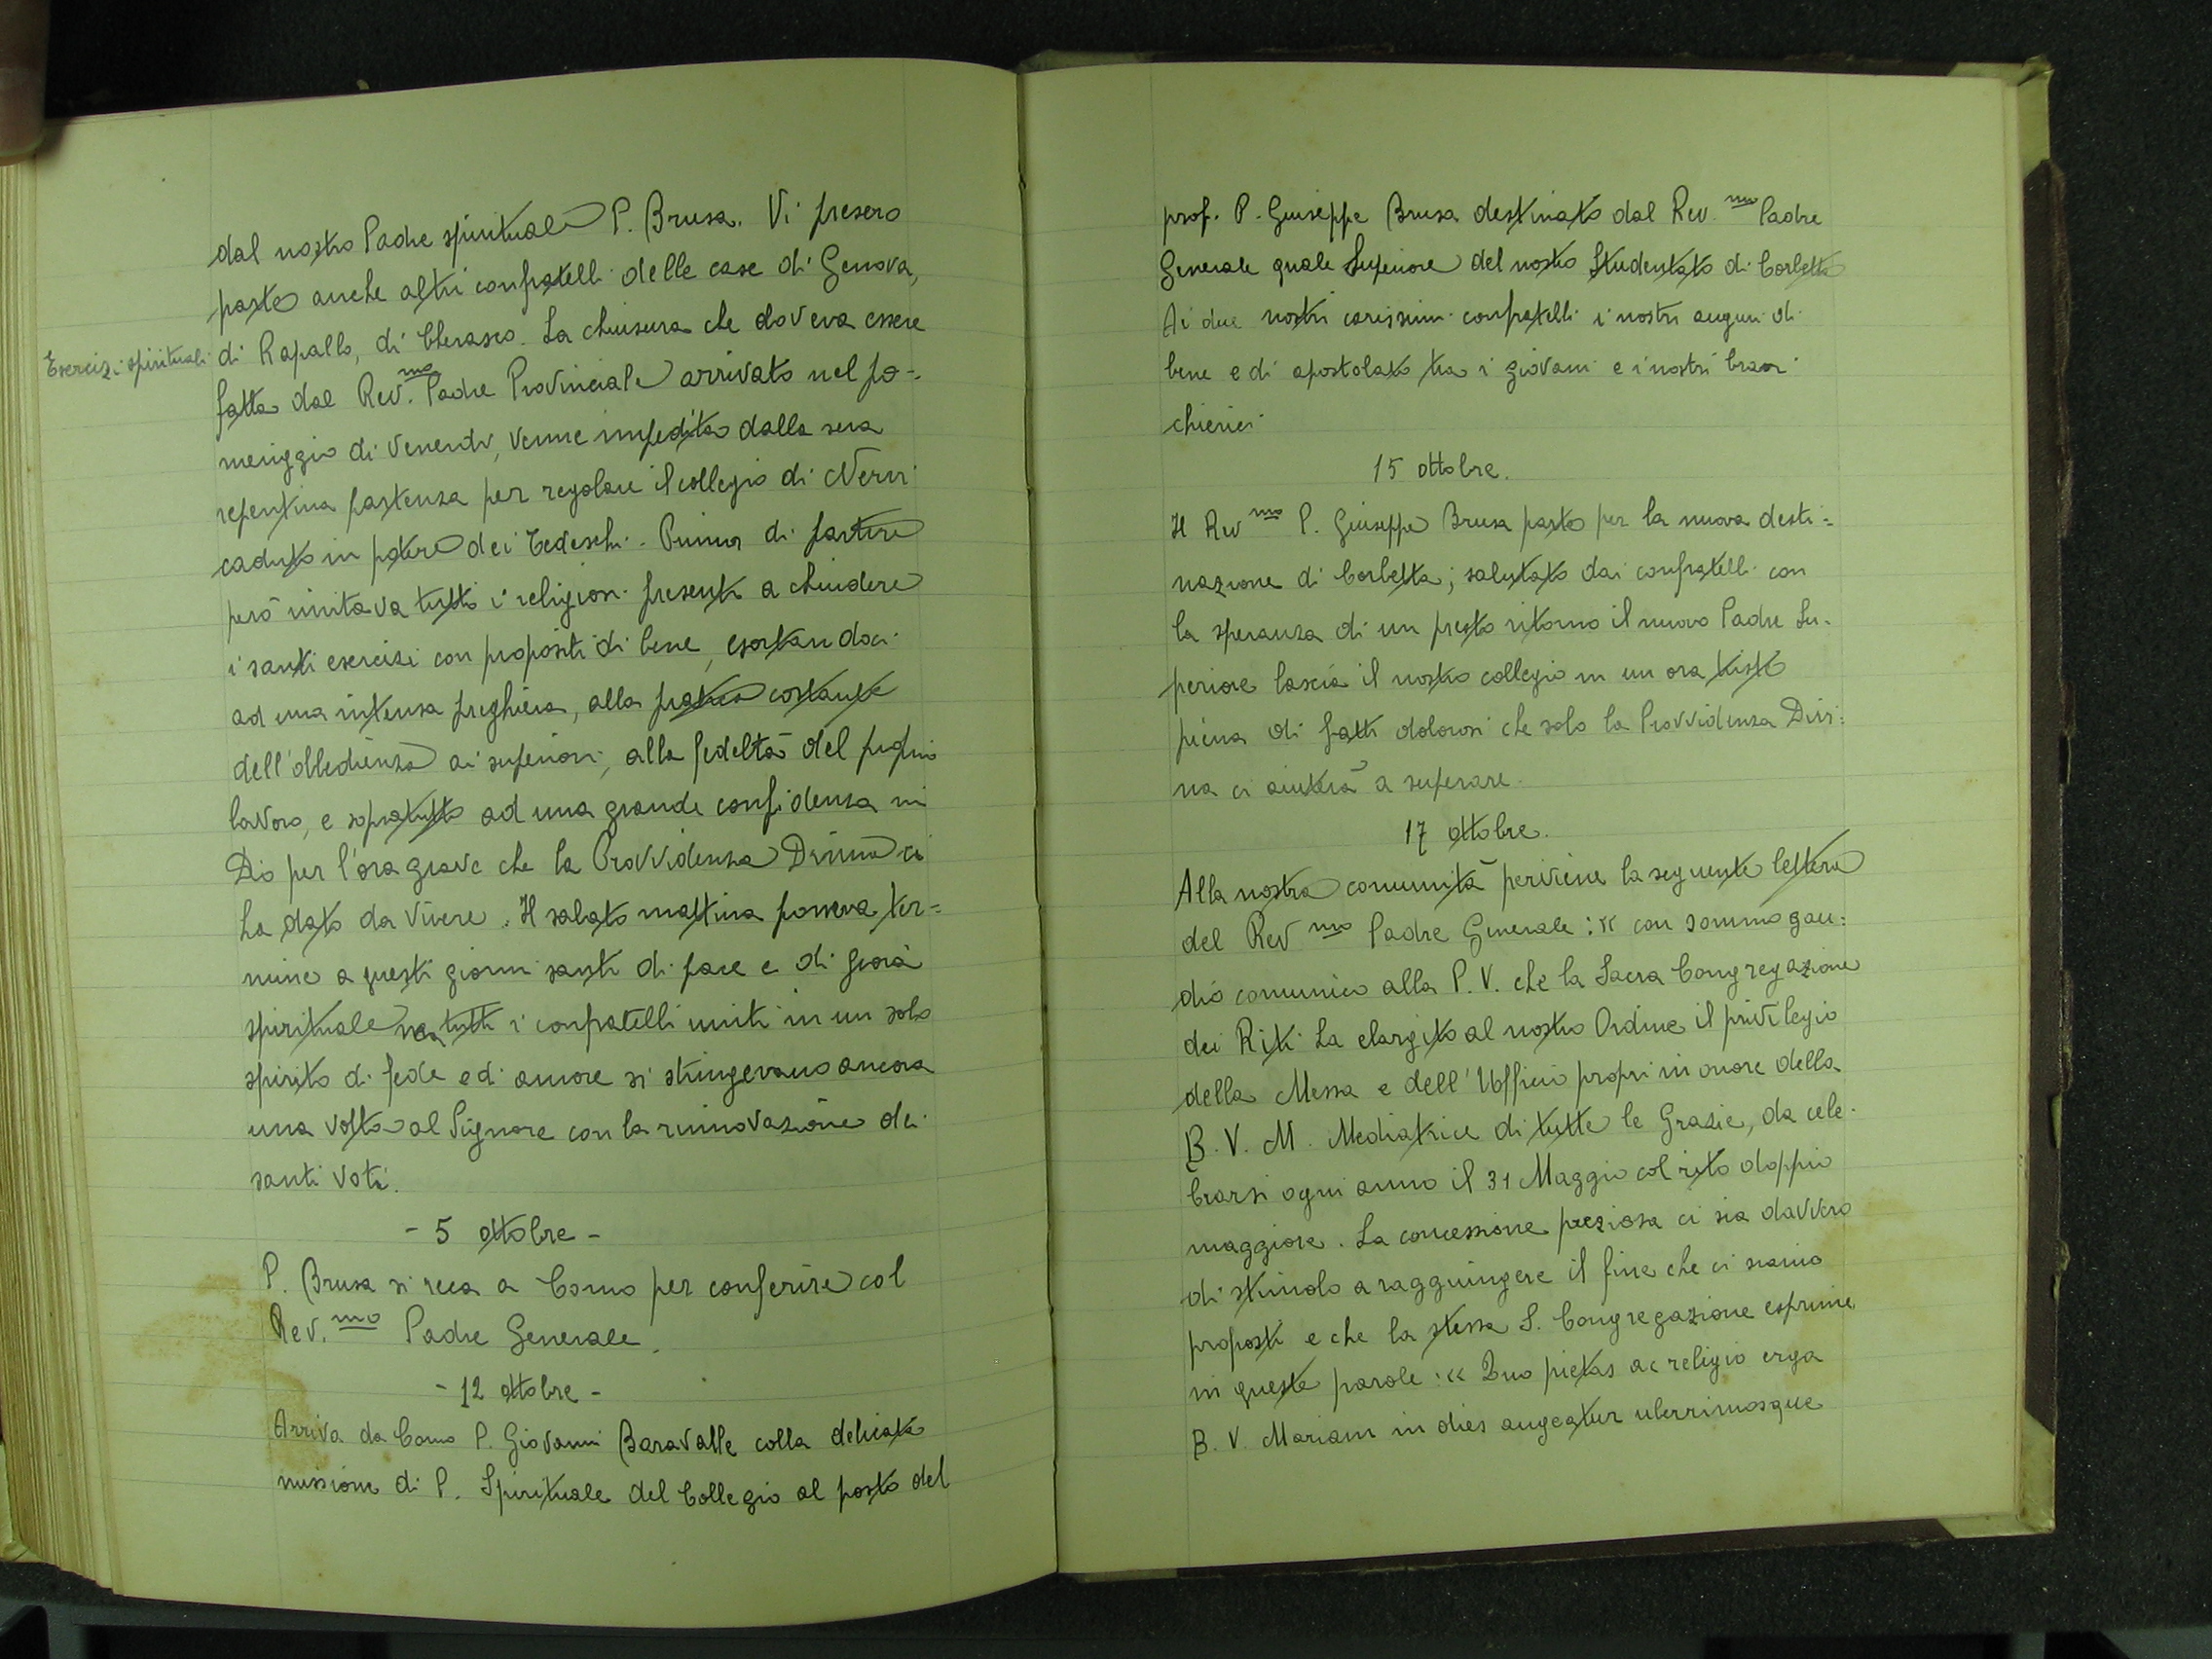 dal nostro Padre spirituale P. Brusa. Vi presero
parte anche altri confratelli delle case di Genova,
Esercizi spirituali
di Rapallo, di Cherasco. La chiusura che doveva essere
fatta dal Rev.mo Padre Provinciale arrivato nel po-
meriggio di venerdì, venne impedita dalla sera
repentina partenza per regolare il collegio di Nervi
caduto in potere dei Tedeschi. Prima di partire
però invitava tutti i religiosi presenti a chiudere
i santi esercizi con propositi di bene, esortandoci
ad una intensa preghiera, alla pratica costante
dell'obbedienza ai superiori, alla fedeltà del proprio
lavoro, e sopratutto ad una grande confidenza in
Dio per l'ora grave che la Provvidenza Divina ci
ha dato da vivere. Il sabato mattina poneva ter=
mine a questi giorni santi di pace e di gioia
spirituale tutti i confratelli uniti in un solo
spirito di fede e di amore si stringevano ancora
una volta al Signore con la rinnovazione dei
santi voti.
- 5 ottobre -
P. Brusa si reca a Como per conferire col
Rev.mo Padre Generale.
- 12 ottobre -
Arriva da Como P. Giovanni Baravalle colla delicata
missione di P. Spirituale del Collegio al posto del
prof. P. Giuseppe Brusa destinato dal Rev.mo Padre
Generale quale Superiore del nostro Studentato di Corbetta
Ai due nostri carissimi confratelli i nostri auguri di
bene e di apostolato tra i giovani e i nostri bravi
chierici
15 ottobre.
Il Rev mo P. Giuseppe Brusa parte per la nuova desti=
nazione di Corbetta; salutato dai confratelli con
la speranza di un presto ritorno il nuovo Padre Su-
periore lascia il nostro collegio in un ora triste
piena di fatti dolorosi che solo la Provvidenza Divi=
na ci aiuterà a superare.
17 ottobre.
Alla nostra comunità perviene la seguente lettera
del Rev mo Padre Generale: « con sommo gau=
dio comunico alla P. V. che la Sacra Congregazione
dei Riti ha elargito al nostro Ordine il privilegio
della Messa e dell'Ufficio propri in onore della
B. V. M. Mediatrice di tutte le Grazie, da cele-
brarsi ogni anno il 31 Maggio col rito doppio
maggiore. La concessione preziosa ci sia davvero
di stimolo a raggiungere il fine che ci siamo
proposti e che la stessa S. Congregazione esprime
in queste parole: « Quo pietas ac religio erga
B. V. Mariam in dies augeatur uberrimosque